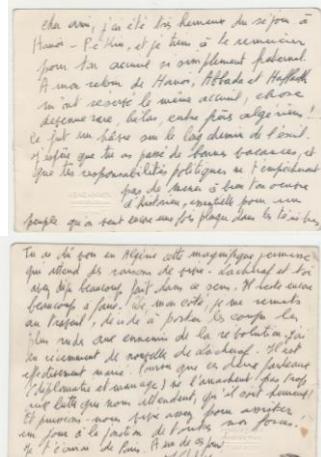 cher ami, j'ai été très heureux du séjour à
Hanoï - Pékin, et je tiens à te remercier
pour ton accueil si simplement fraternel.
A mon retour de Hanoï, Abbada et
m'ont réservé le même accueil, chose
devenue rare, hélas, entre frères algériens!
Ce fut un havre sur le long chemin de l'exil.
J'espère que tu as passé de bonnes vacances, et
que tes responsabilités politiques ne t'empêchent
pas de mener à bien ton œuvre
d'historien, essentielle pour un
peuple qu'on veut encore une fois plonger dans les ténèbres
Tu as dû voir en Algérie cette magnifique jeunesse
qui attend des raisons de vivre. Lacheraf et toi
avez déjà beaucoup fait dans ce sens. Il reste encore
beaucoup à faire. De mon côté, je me remets
au travail, décidé à porter les coups les
plus rudes aux ennemis de la révolution. J'ai
eu récemment de nouvelles de Lacheraf. Il est
effectivement marié. Pourvu que ces deux fardeaux
(diplomatie et mariage) ne l'arrachent pas trop
aux luttes que nous attendent, qu'il soit heureux!
Et puissions-nous vivre assez pour arriver
un jour à la jonction de toutes nos forces.
Je t'écrirai de Paris. A un de ces jours